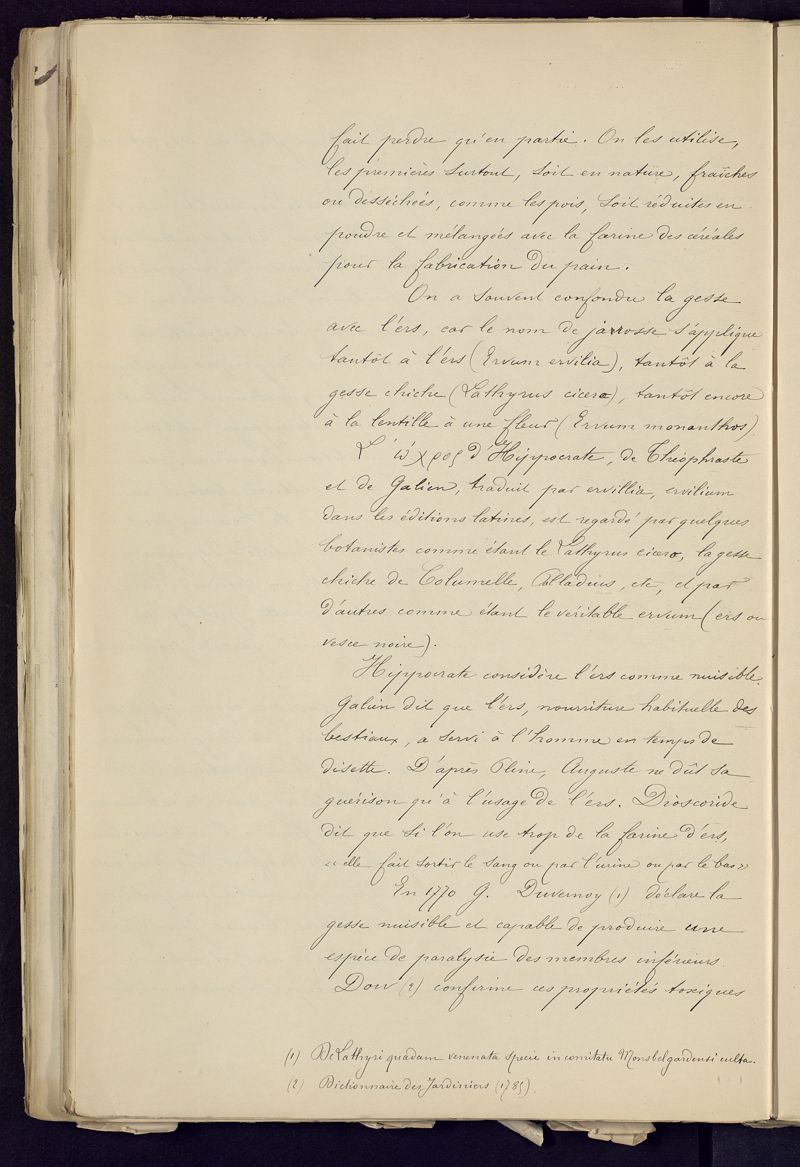 fait perdre qu'en partie. On les utilise,
les premières surtout, soit en nature, fraîches
ou desséchées, comme les pois, soit réduites en
poudre et mélangées avec la farine des céréales
pour la fabrication du pain.
On a souvent confondu la gesse
avec l'ers, car le nom de jarosse s'applique
tantôt à l'ers (Ervum ervilia), tantôt à la
gesse chiche (Lathyrus cicera), tantôt encore
à la lentille à une fleur (Ervum monanthos).
L'ὠχρος d'Hippocrate, de Théophraste
et de Galien, traduit par ervillia, ervilium
dans les éditions latines, est regardé par quelques
botanistes comme étant le Lathyrus cicera, la gesse
chiche de Columelle, Palladius, etc, et par
d'autres comme étant le véritable ervum (ers ou
vesce noire).
Hippocrate considère l'ers comme nuisible.
Galien dit que l'ers, nourriture habituelle des
bestiaux, a servi à l'homme en temps de
disette. D'après Pline, Auguste ne dût sa
guérison qu'à l'usage de l'ers. Dioscoride
dit que si l'on use trop de la farine d'ers,
« elle fait sortir le sang ou par l'urine ou par le bas »
En 1770 G. Duvernoy (1) déclare la
gesse nuisible et capable de produire une
espèce de paralysie des membres inférieurs.
(2) confirme ces propriétés toxiques
(1) De Lathyri quadam venenata specie in comitatu Monsbelgardensi culta.
(2) Dictionnaire des Jardiniers (1785).